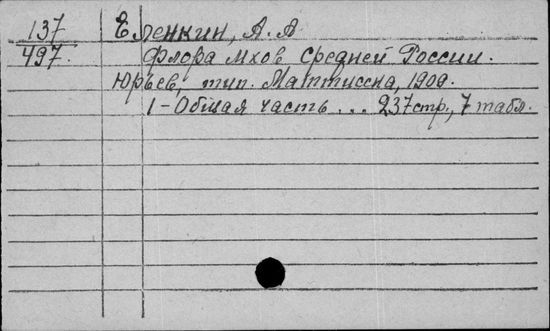 137
497.
Еленкин, А. А
Флора мхов Средней России.
Юрьев, тип. Маттиссна, 1909.
1 - Общая часть ... 237 стр., 7 табл.